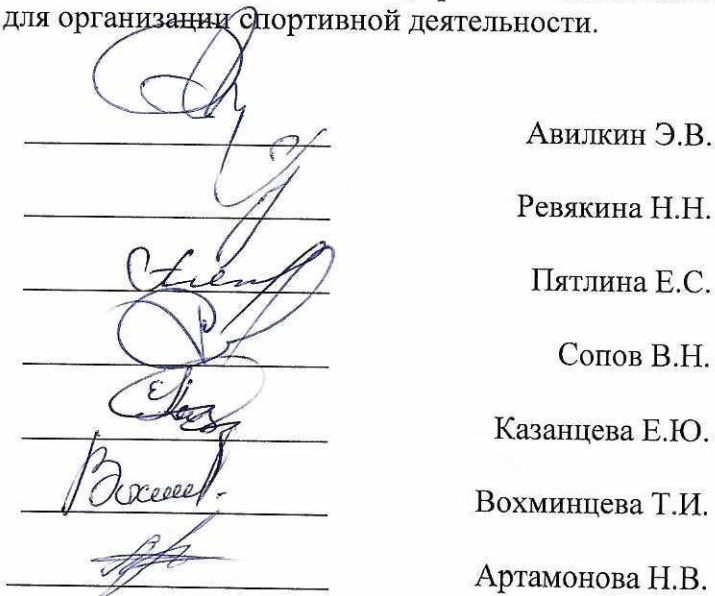 для организации спортивной деятельности.
Авилкин Э.В.
Ревякина Н.Н.
Пятлина Е.С.
Сопов В.Н.
Казанцева Е.Ю.
Вохминцева Т.И.
Артамонова Н.В.